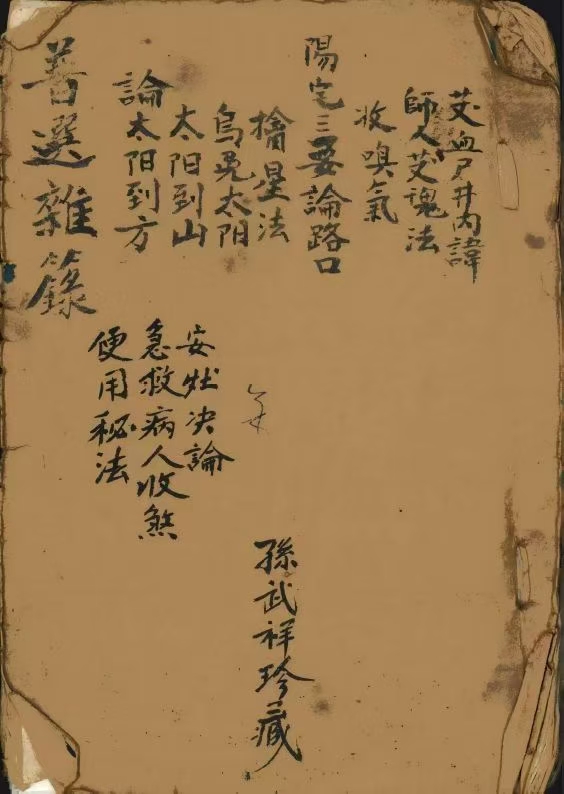 艾血尸井内諱
師人艾魂法
收嗅氣
陽宅三要論路口
擒星法
烏兎太阳
太阳到山
論太阳到方
選雜籙
安牀决論
急救病人收煞
便用秘法
孫武祥珍藏